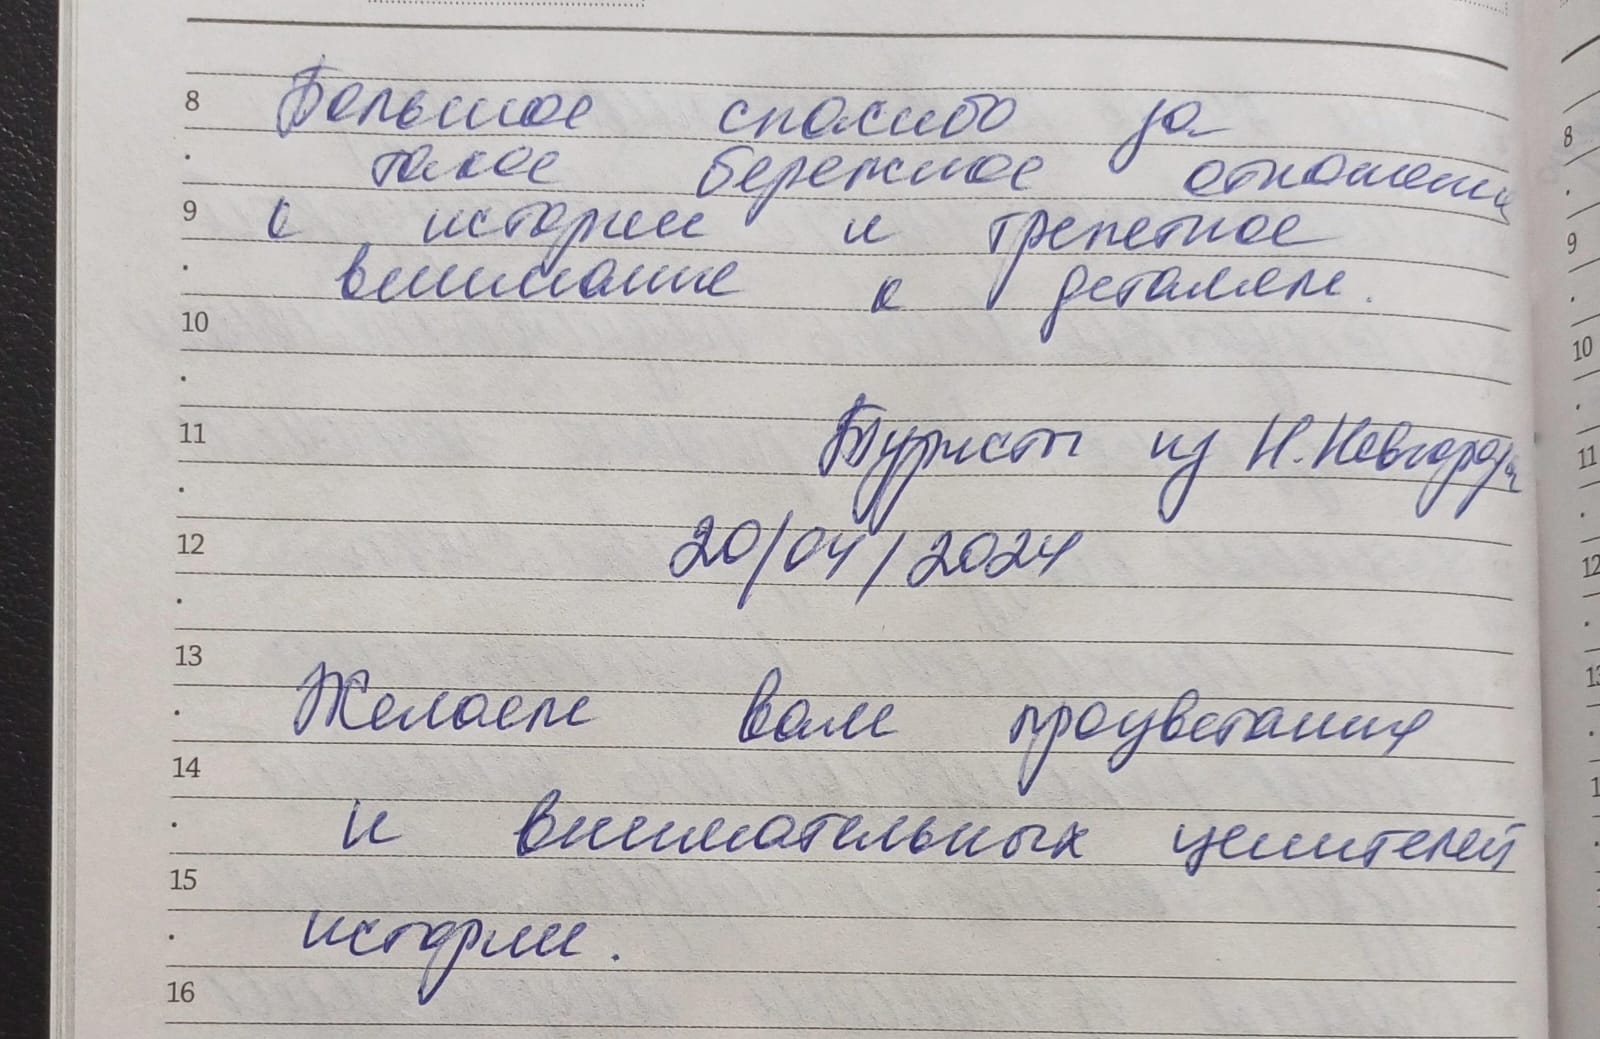 8 Большое спасибо за
такое бережное отношение
9 к истории и трепетное
внимание к деталям.
10
11 Туристы из Н. Новгорода
12 20/04/2024
13
Желаем вам процветания
14
и внимательных ценителей
15
истории.
16
8
9
10
11
12